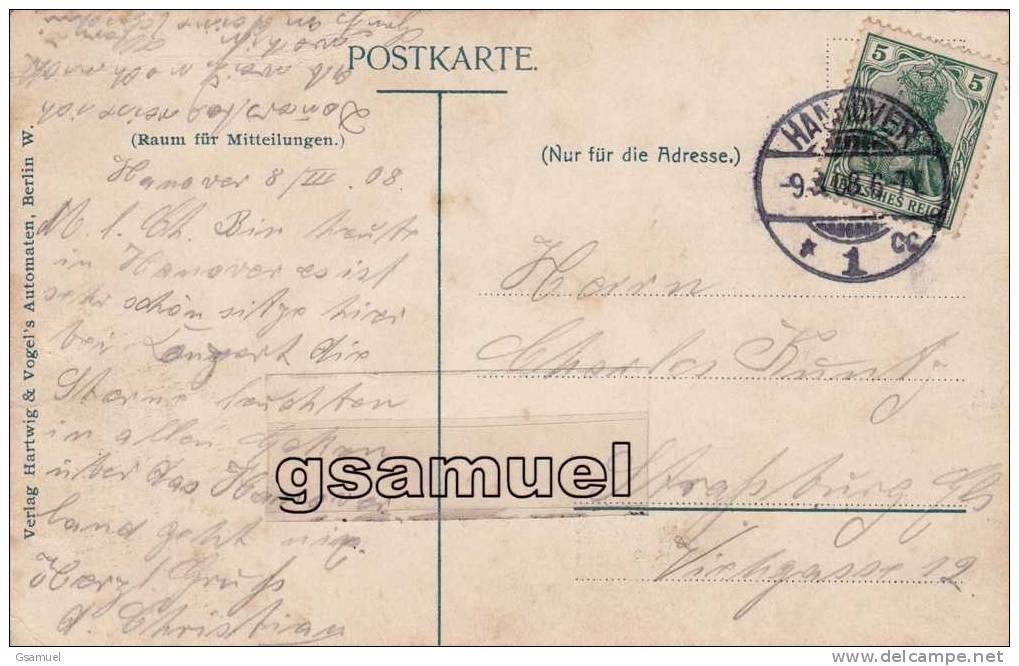 POSTKARTE.
(Raum für Mitteilungen.)
Hanover 8/III. 08.
M. l. Ch. Bin heute
in Hanover es ist
sehr schön sitze hier
bei Conzert die
Sterne leuchten
in allen
über das
land geht
Herzl. Gruß
d. Christian
Donnerstag reise ich
ab weiß noch nicht
Verlag Hartwig & Vogel's Automaten, Berlin W.
(Nur für die Adresse.)
Herrn
Charles Kuntz
Straßburg Els
Viehgasse 12
5 5
DEUTSCHES REICH
HANNOVER
-9.3.08.6-7V.
* 1 cc
gsamuel
Gsamuel
www.delcampe.net